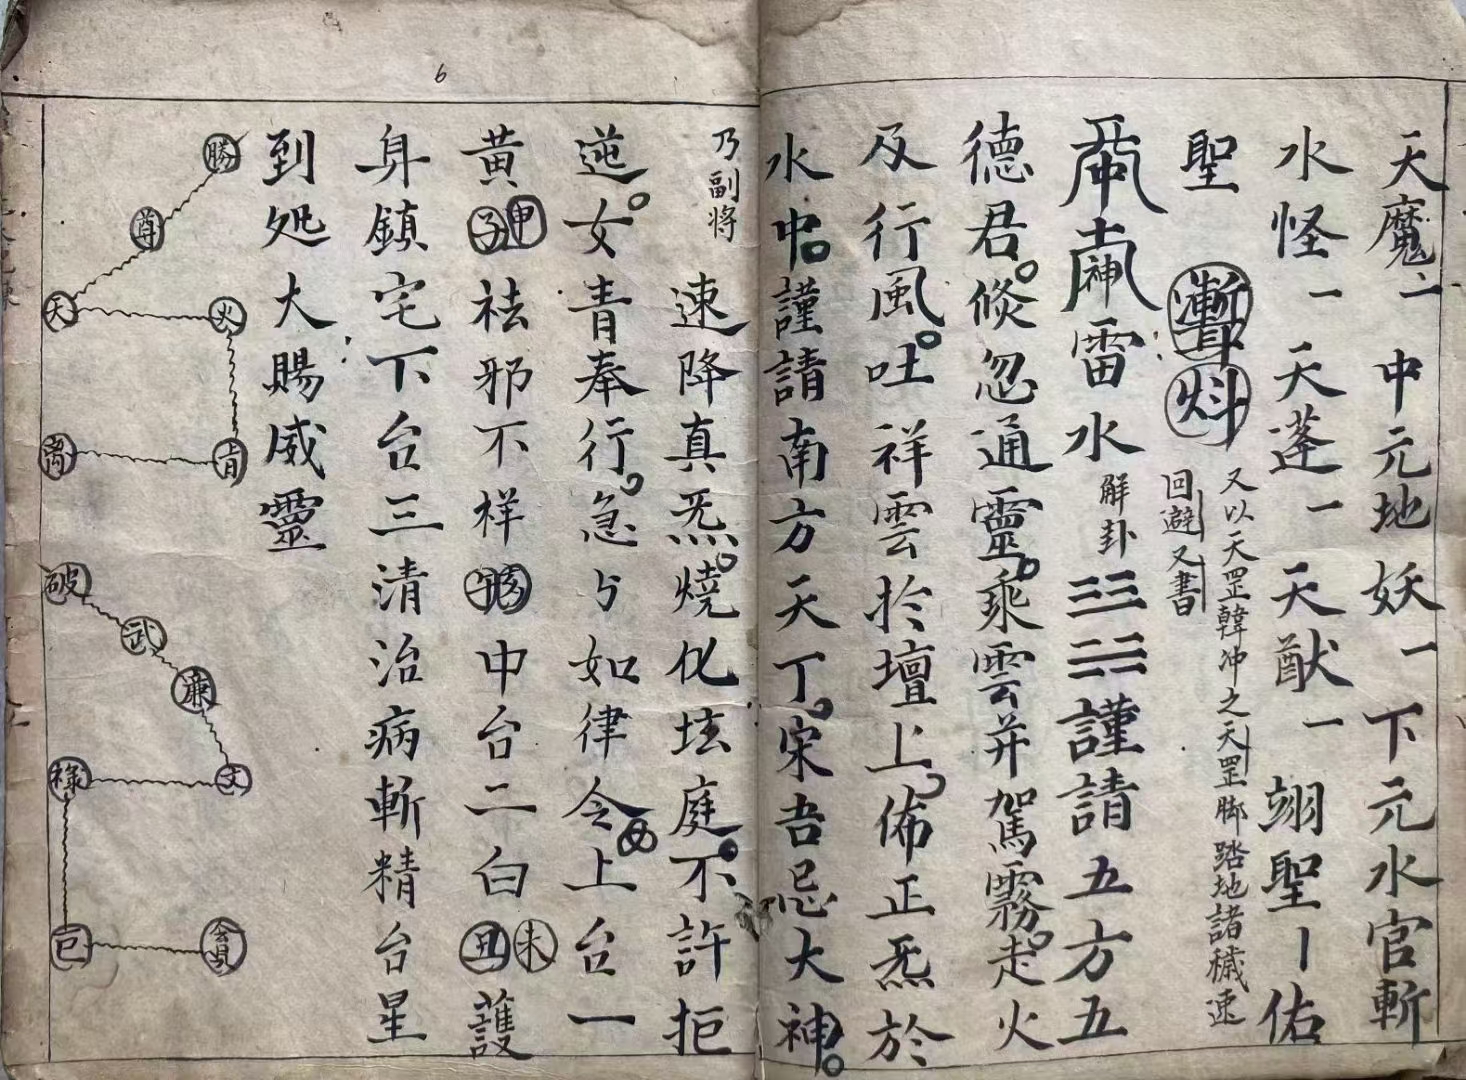 天魔〻 中元地妖一 下元水官斬
水怪一 天蓬一 天猷一 翊聖一 佑
聖
又以天罡韓冲之天罡脚踏地諸穢速
回避又書
雷水 解卦 謹請五方五
德君倏忽通靈乘雲并駕霧走火
及行風吐祥雲於壇上佈正炁於
水中謹請南方天丁宋吾忌大神
乃副将
速降真炁燒化坛庭不許拒
逆女青奉行急急如律令上台一
黃 子 申 祛邪不祥 中台二白 丑 未 護
身鎮宅下台三清治病斬精台星
到処大賜威靈
6
勝
尊
天 火
离 肖
破
武
廉
祿 文
巨 會